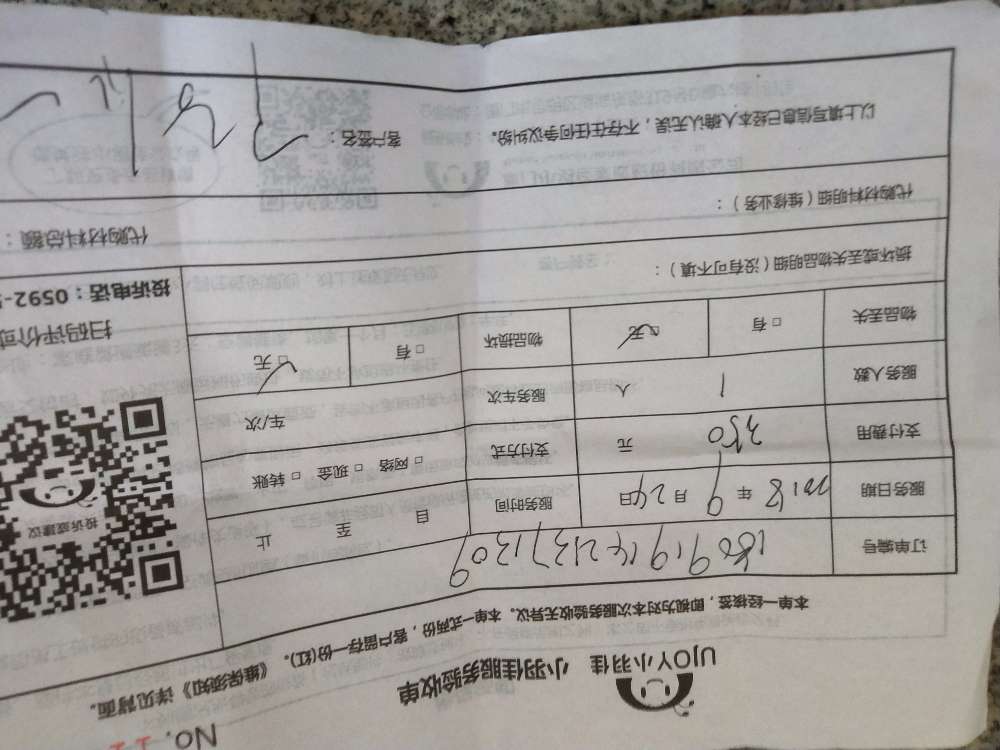 No.
UJOY小羽佳 小羽佳服务验收单
本单一经核签，即视为对本次服务验收无异议。本单一式两份，客户留存一份(红)。《维保须知》详见背面。
订单编号 1809191421371309
服务日期 2018 年 9 月 24 日 服务时间 自 至 止
支付费用 350 元 支付方式 □ 网络 □ 现金 □ 转账
服务人数 1 人 服务车次 车/次
物品丢失 □ 有 □ 无 物品损坏 □ 有 □ 无
损坏或丢失物品明细（没有可不填）：
代购材料明细（维修业务）：
代购材料总额：
以上填写信息已经本人确认无误，不存在任何争议纠纷。 客户签名：
投诉或建议
扫码评价或
投诉电话：0592-5